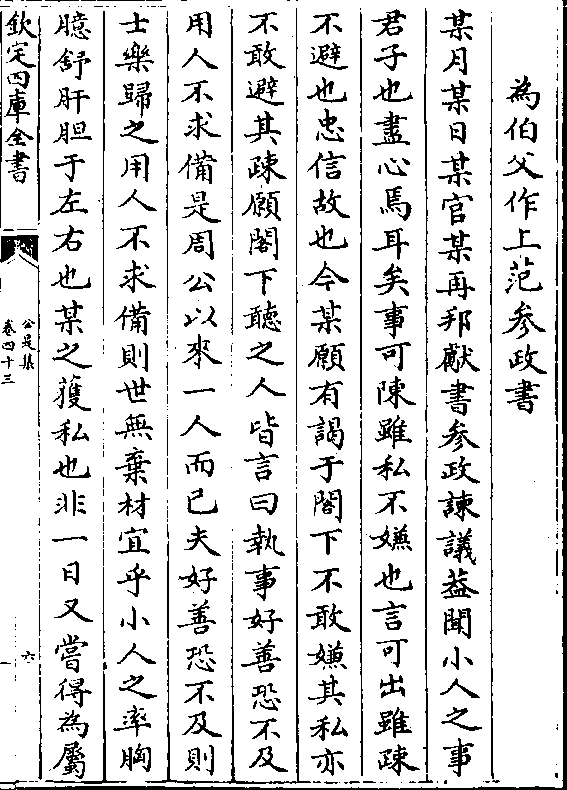 為伯父作上范参政書
某月某日某官某再拜獻書參政諫議葢聞小人之事
君子也盡心焉耳矣事可陳雖私不嫌也言可出雖疎
不避也忠信故也今某願有謁于閤下不敢嫌其私亦
不敢避其疎願閤下聽之人皆言曰執事好善恐不及
用人不求備是周公以來一人而已夫好善恐不及則
士樂歸之用人不求備則世無棄材宜乎小人之率胸
臆舒肝胆于左右也某之獲私也非一日又嘗得為屬
欽定四庫全書
公是集
卷四十三
六